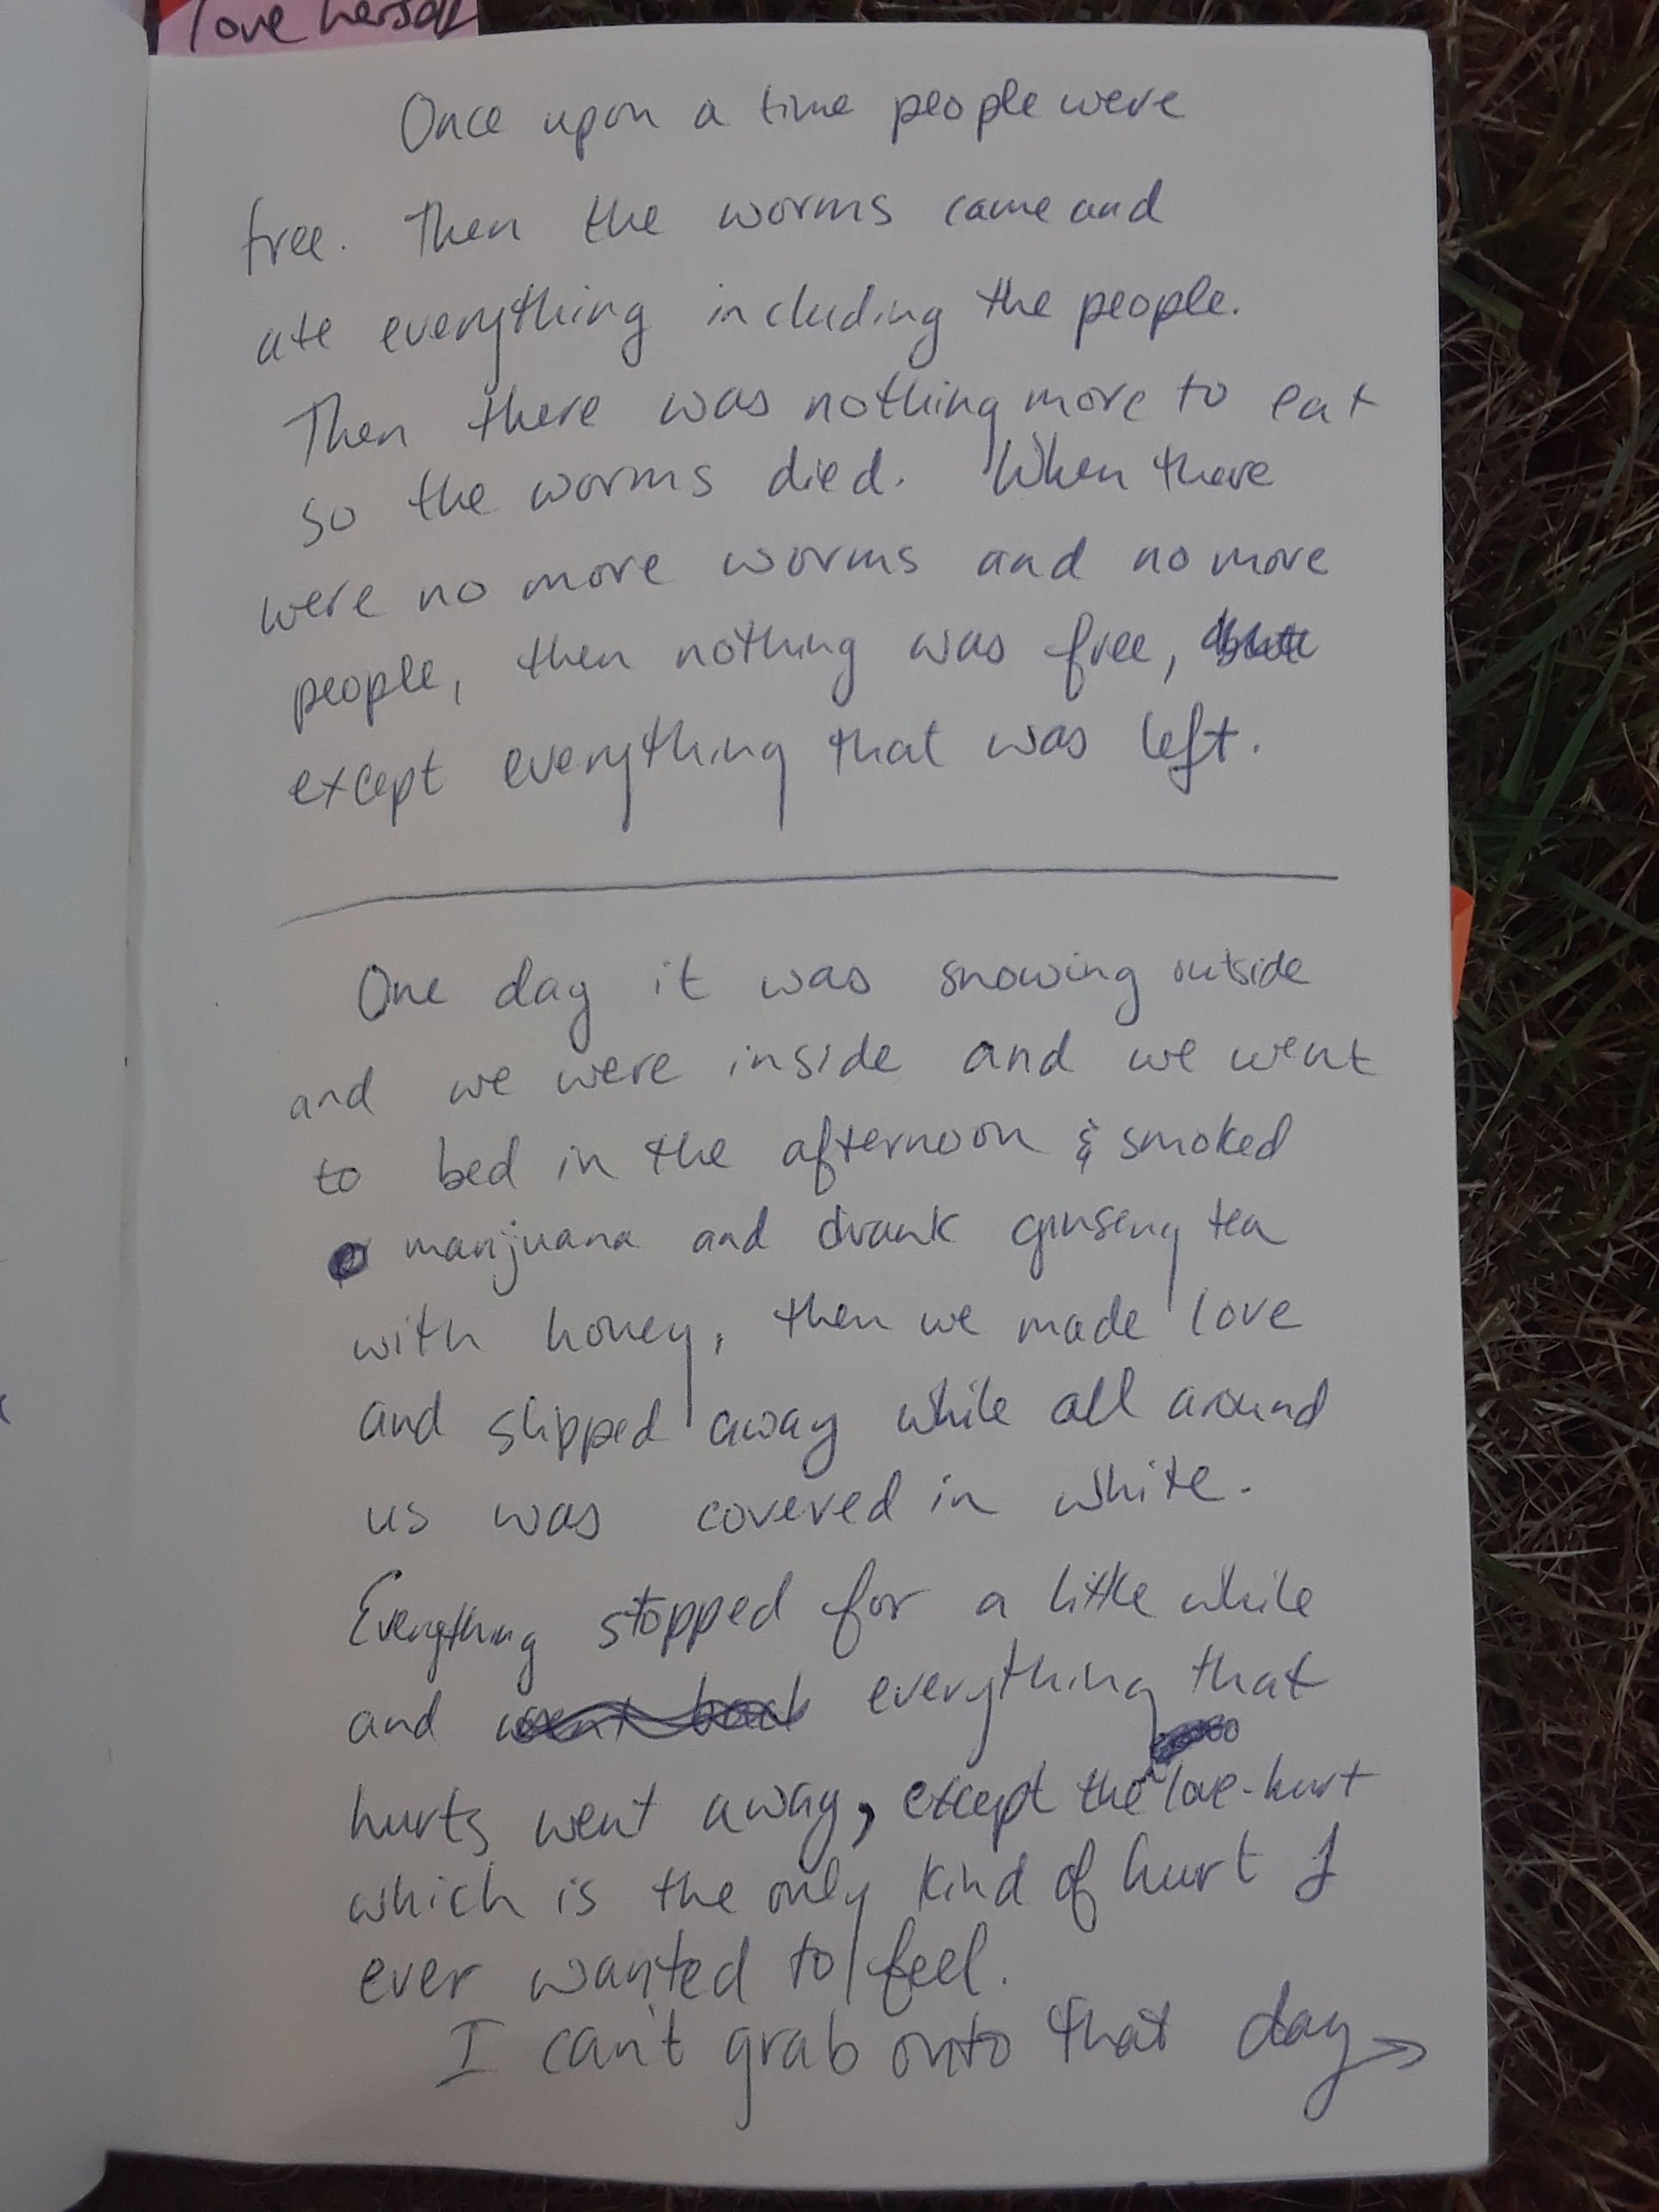 love herself
Once upon a time people were
free. Then the worms came and
ate everything including the people.
Then there was nothing more to eat
so the worms died. When there
were no more worms and no more
people, then nothing was free,
except everything that was left.
One day it was snowing outside
and we were inside and we went
to bed in the afternoon & smoked
marijuana and drank ginseng tea
with honey, then we made love
and slipped away while all around
us was covered in white.
Everything stopped for a little while
and went back everything that
hurts went away, except the love-hurt
which is the only kind of hurt I
ever wanted to feel.
I can't grab onto that day →